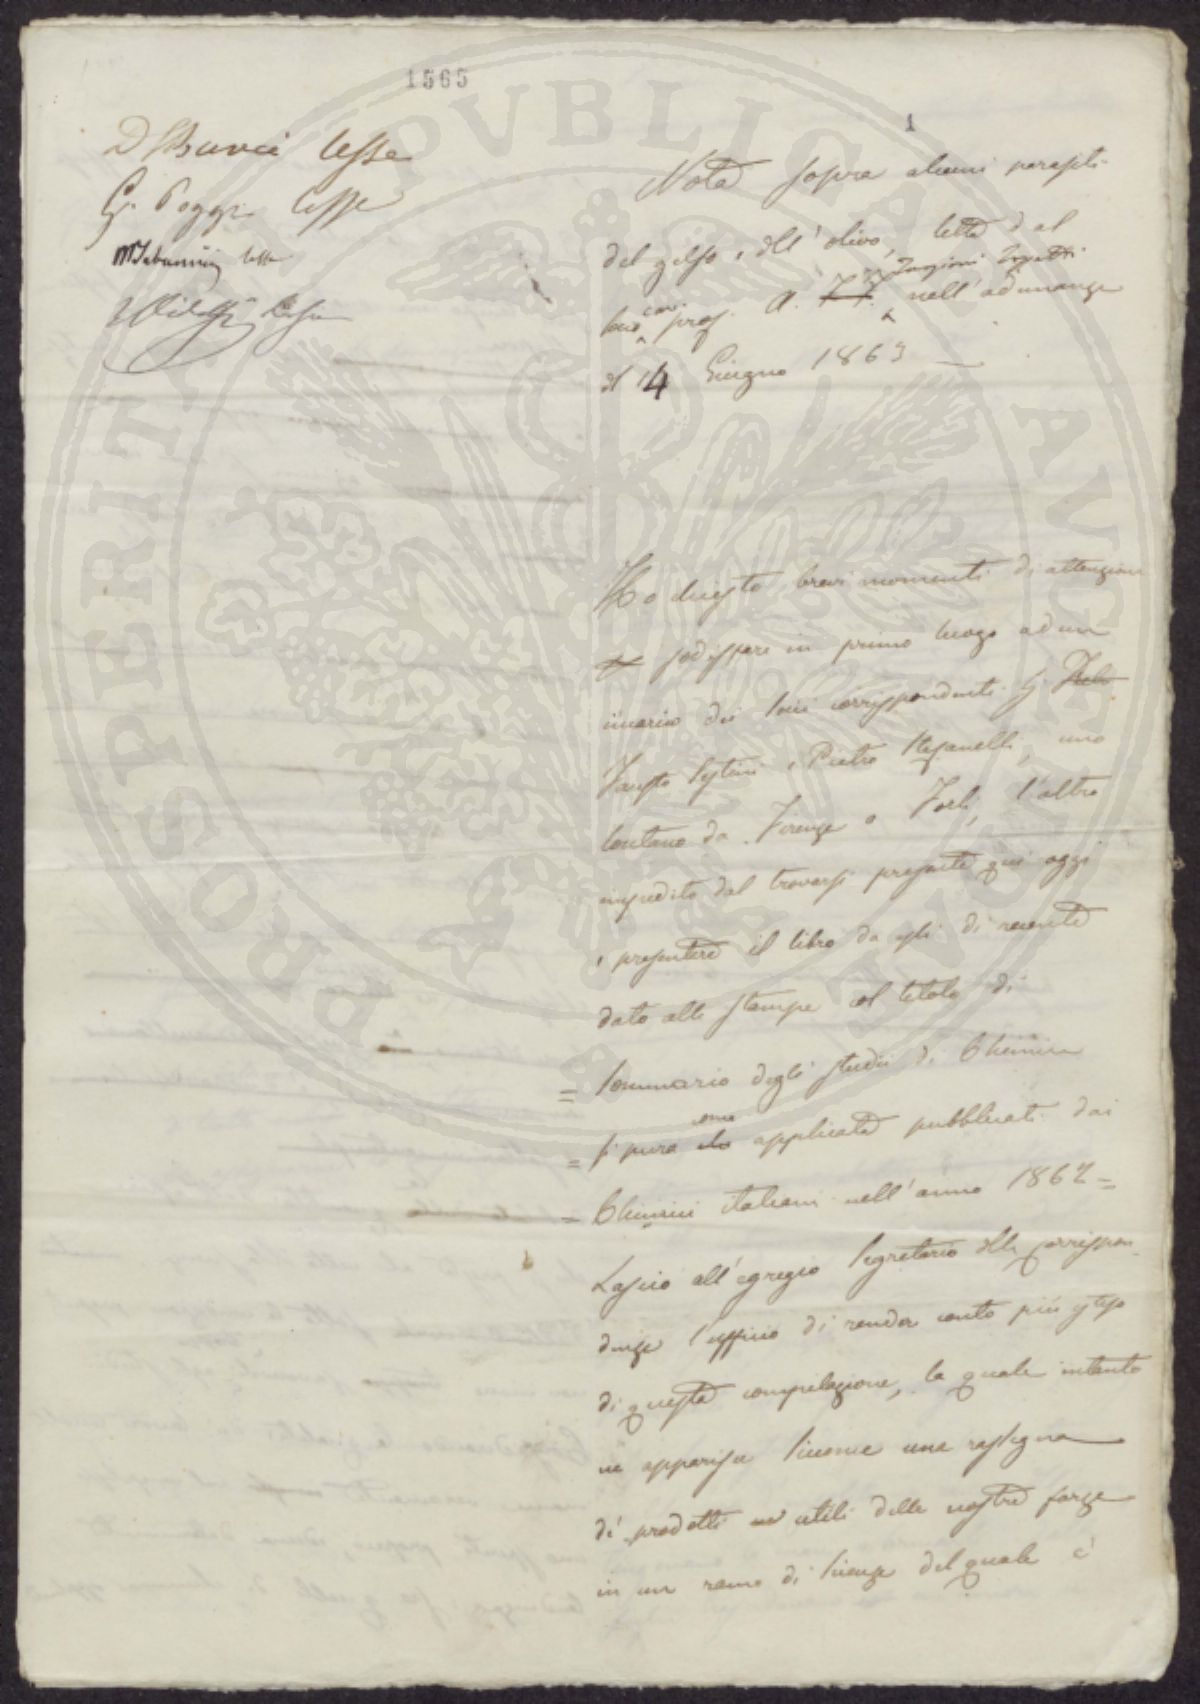 1565
1
D Bucci lesse
G. Poggi lesse
lesse
lesse
Nota sopra alcuni parassiti
del gelso e dell'olivo, letta dal
socio corr. prof. A. T. T. Targioni Tozzetti nell'adunanza
del 14 Giugno 1863
Ho chiesto brevi momenti di attenzione
sodisfare in primo luogo ad un
incarico dei Soci corrispondenti
Fausto Sestini e Pietro Stefanelli, uno
lontano da Firenze a Forlì, l'altro
impedito dal trovarsi presente qui oggi
e presentare il libro da essi di recente
dato alle stampe col titolo di
= Sommario degli studii di Chimica
= sì pura che come applicata pubblicati dai
= Chimici italiani nell'anno 1862 =
Lascio all'egregio Segretario delle corrispon-
denze l'ufficio di render conto più esteso
di questa compilazione, la quale intanto
ne apparisce siccome una rassegna
dei prodotti utili delle nostre forze
in un ramo di scienze del quale è
PROSPERITATI PVBLICAE AVGENDAE